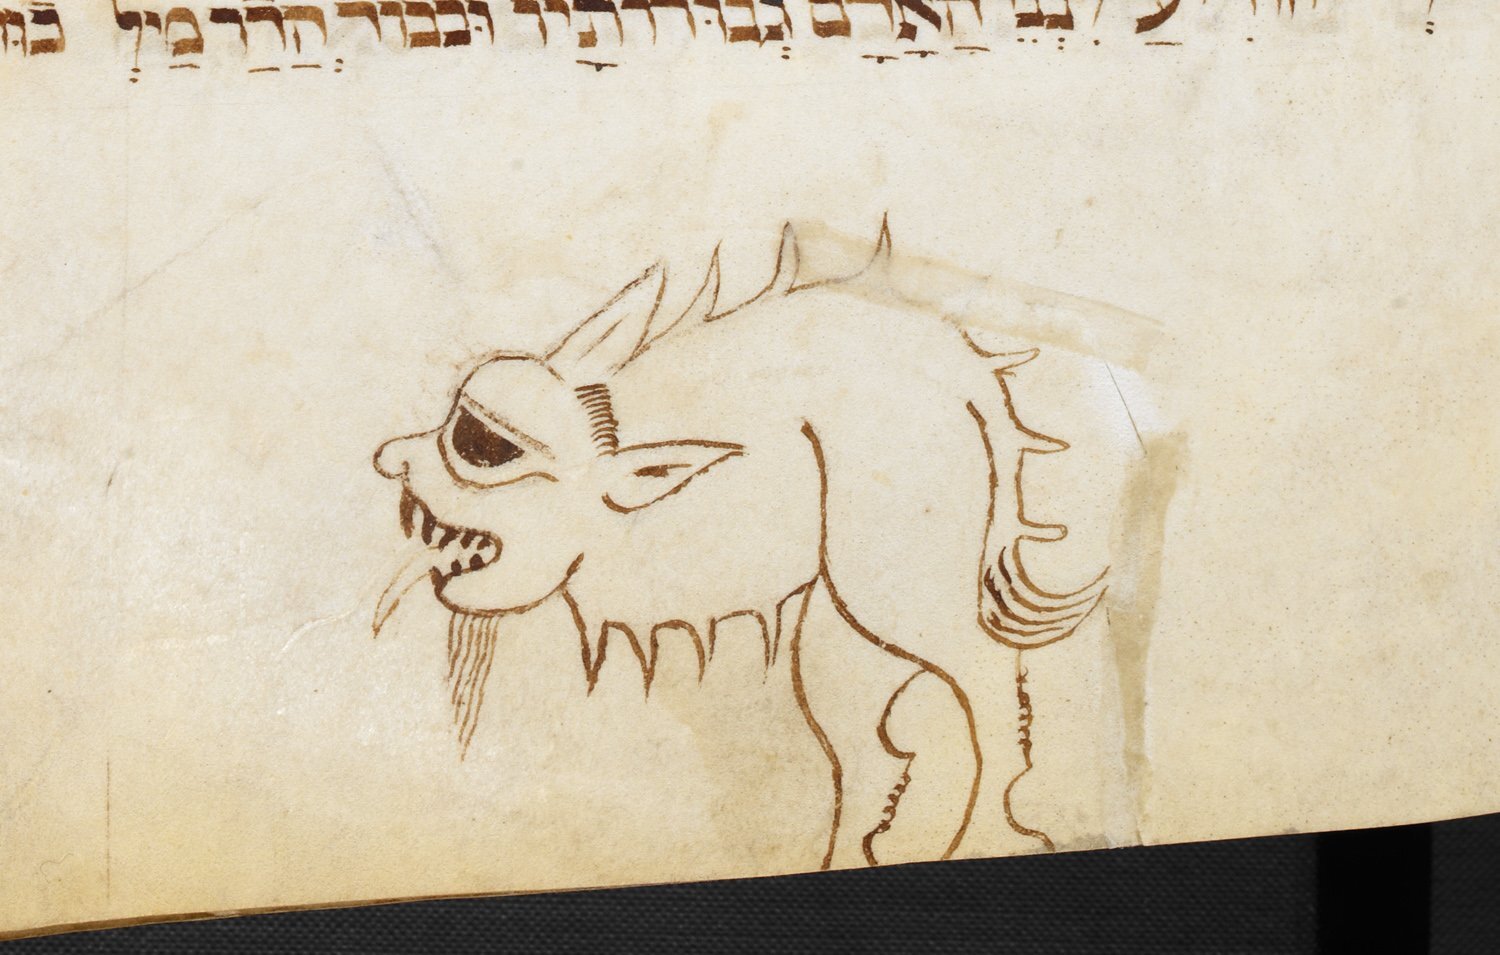 לִבְנֵי הָאָדָם גְּבוּרֹתָיו וּכְבוֹד הֲדַר מַלְכוּ